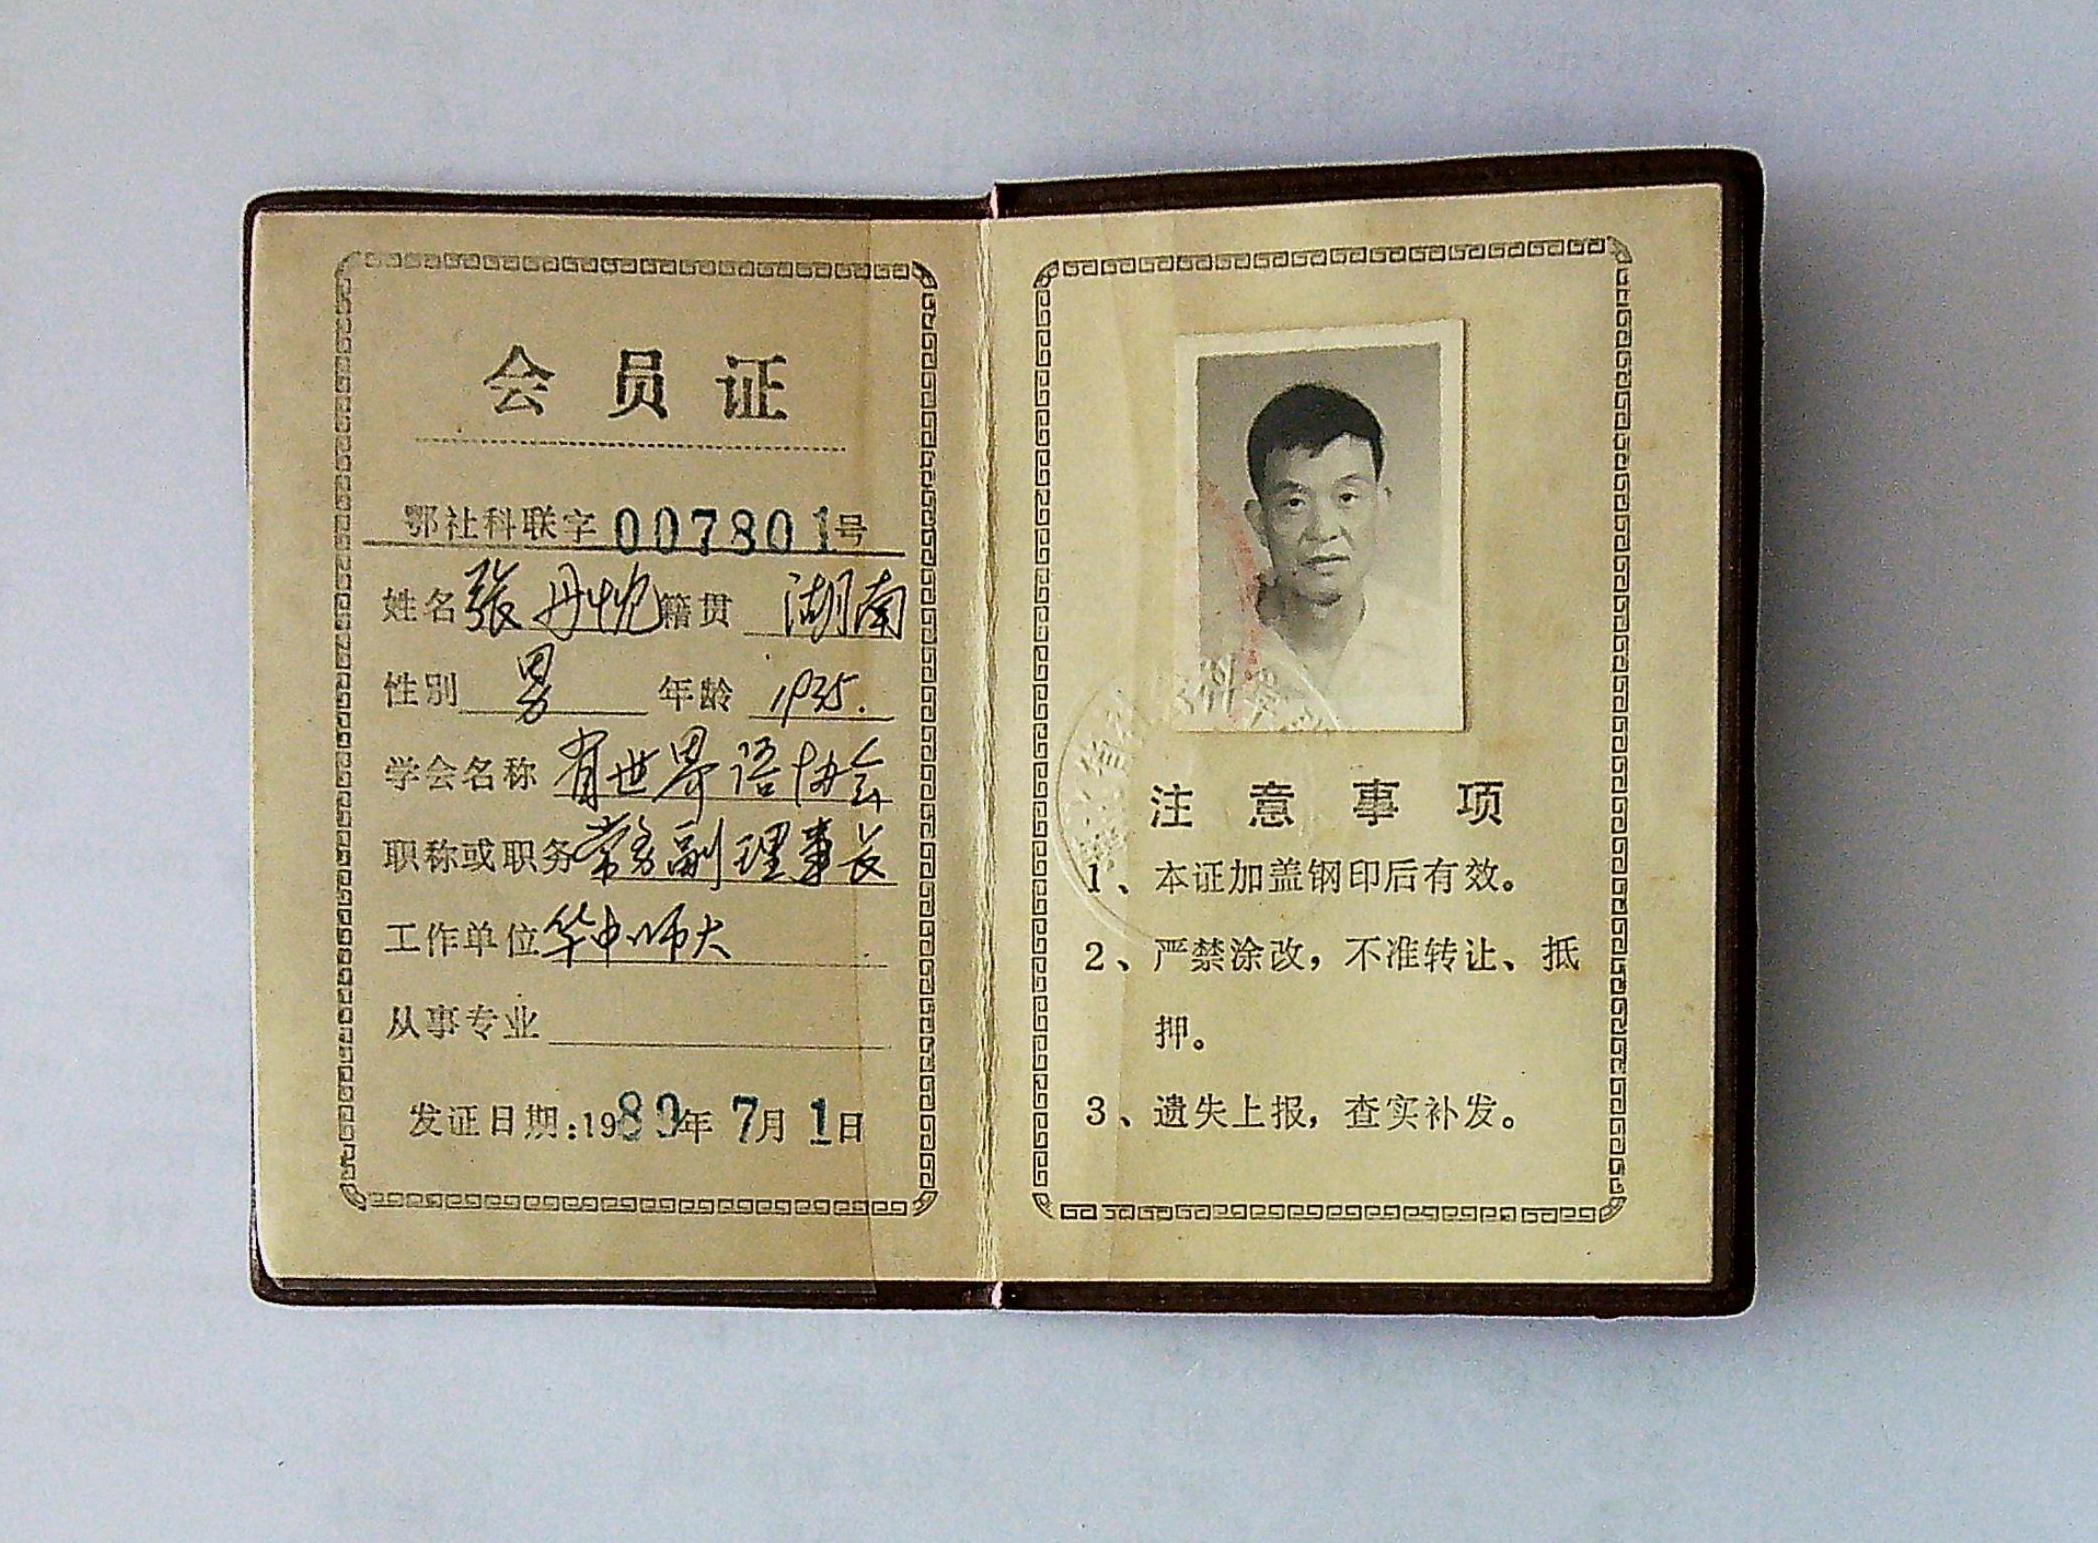 会员证
鄂社科联字007801号
姓名 张丹忱 籍贯 湖南
性别 男 年龄 1935.
学会名称 省世界语协会
职称或职务 常务副理事长
工作单位 华中师大
从事专业
发证日期:1989年7月1日
注意事项
1、本证加盖钢印后有效。
2、严禁涂改，不准转让、抵
押。
3、遗失上报，查实补发。